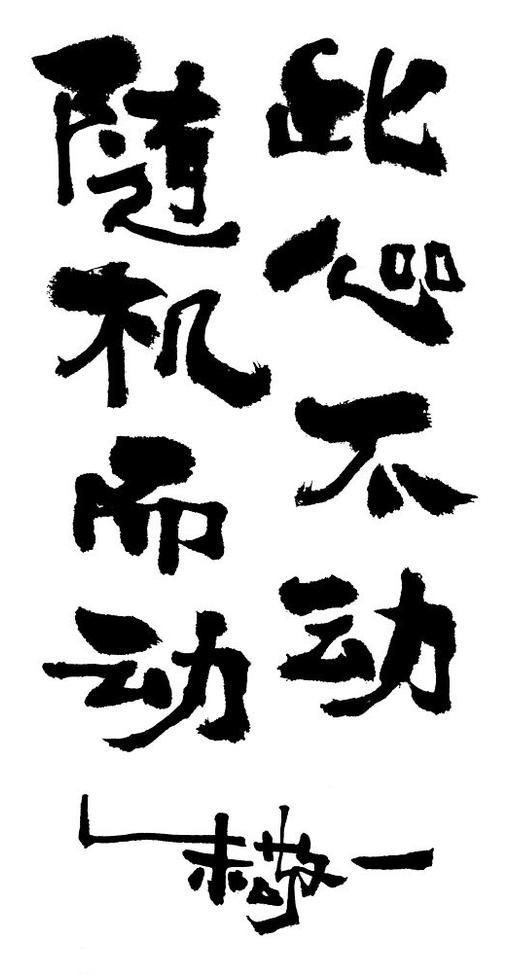 此心不动
随机而动